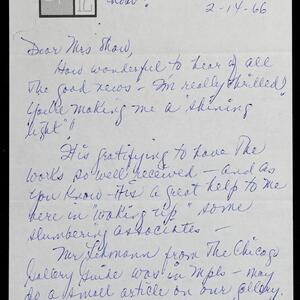 now!
2-14-66
Dear Mrs Shaw,
How wonderful to hear of all
the good news - I'm really thrilled!
You're making me a "shining
light"!
It is gratifying to have the
works so well received - and as
you know - it is a great help to me
here in "waking up" some
slumbering associates -
Mr Lehmann from the Chicago
Gallery Guide was in Mpls - may
do a small article on our gallery.